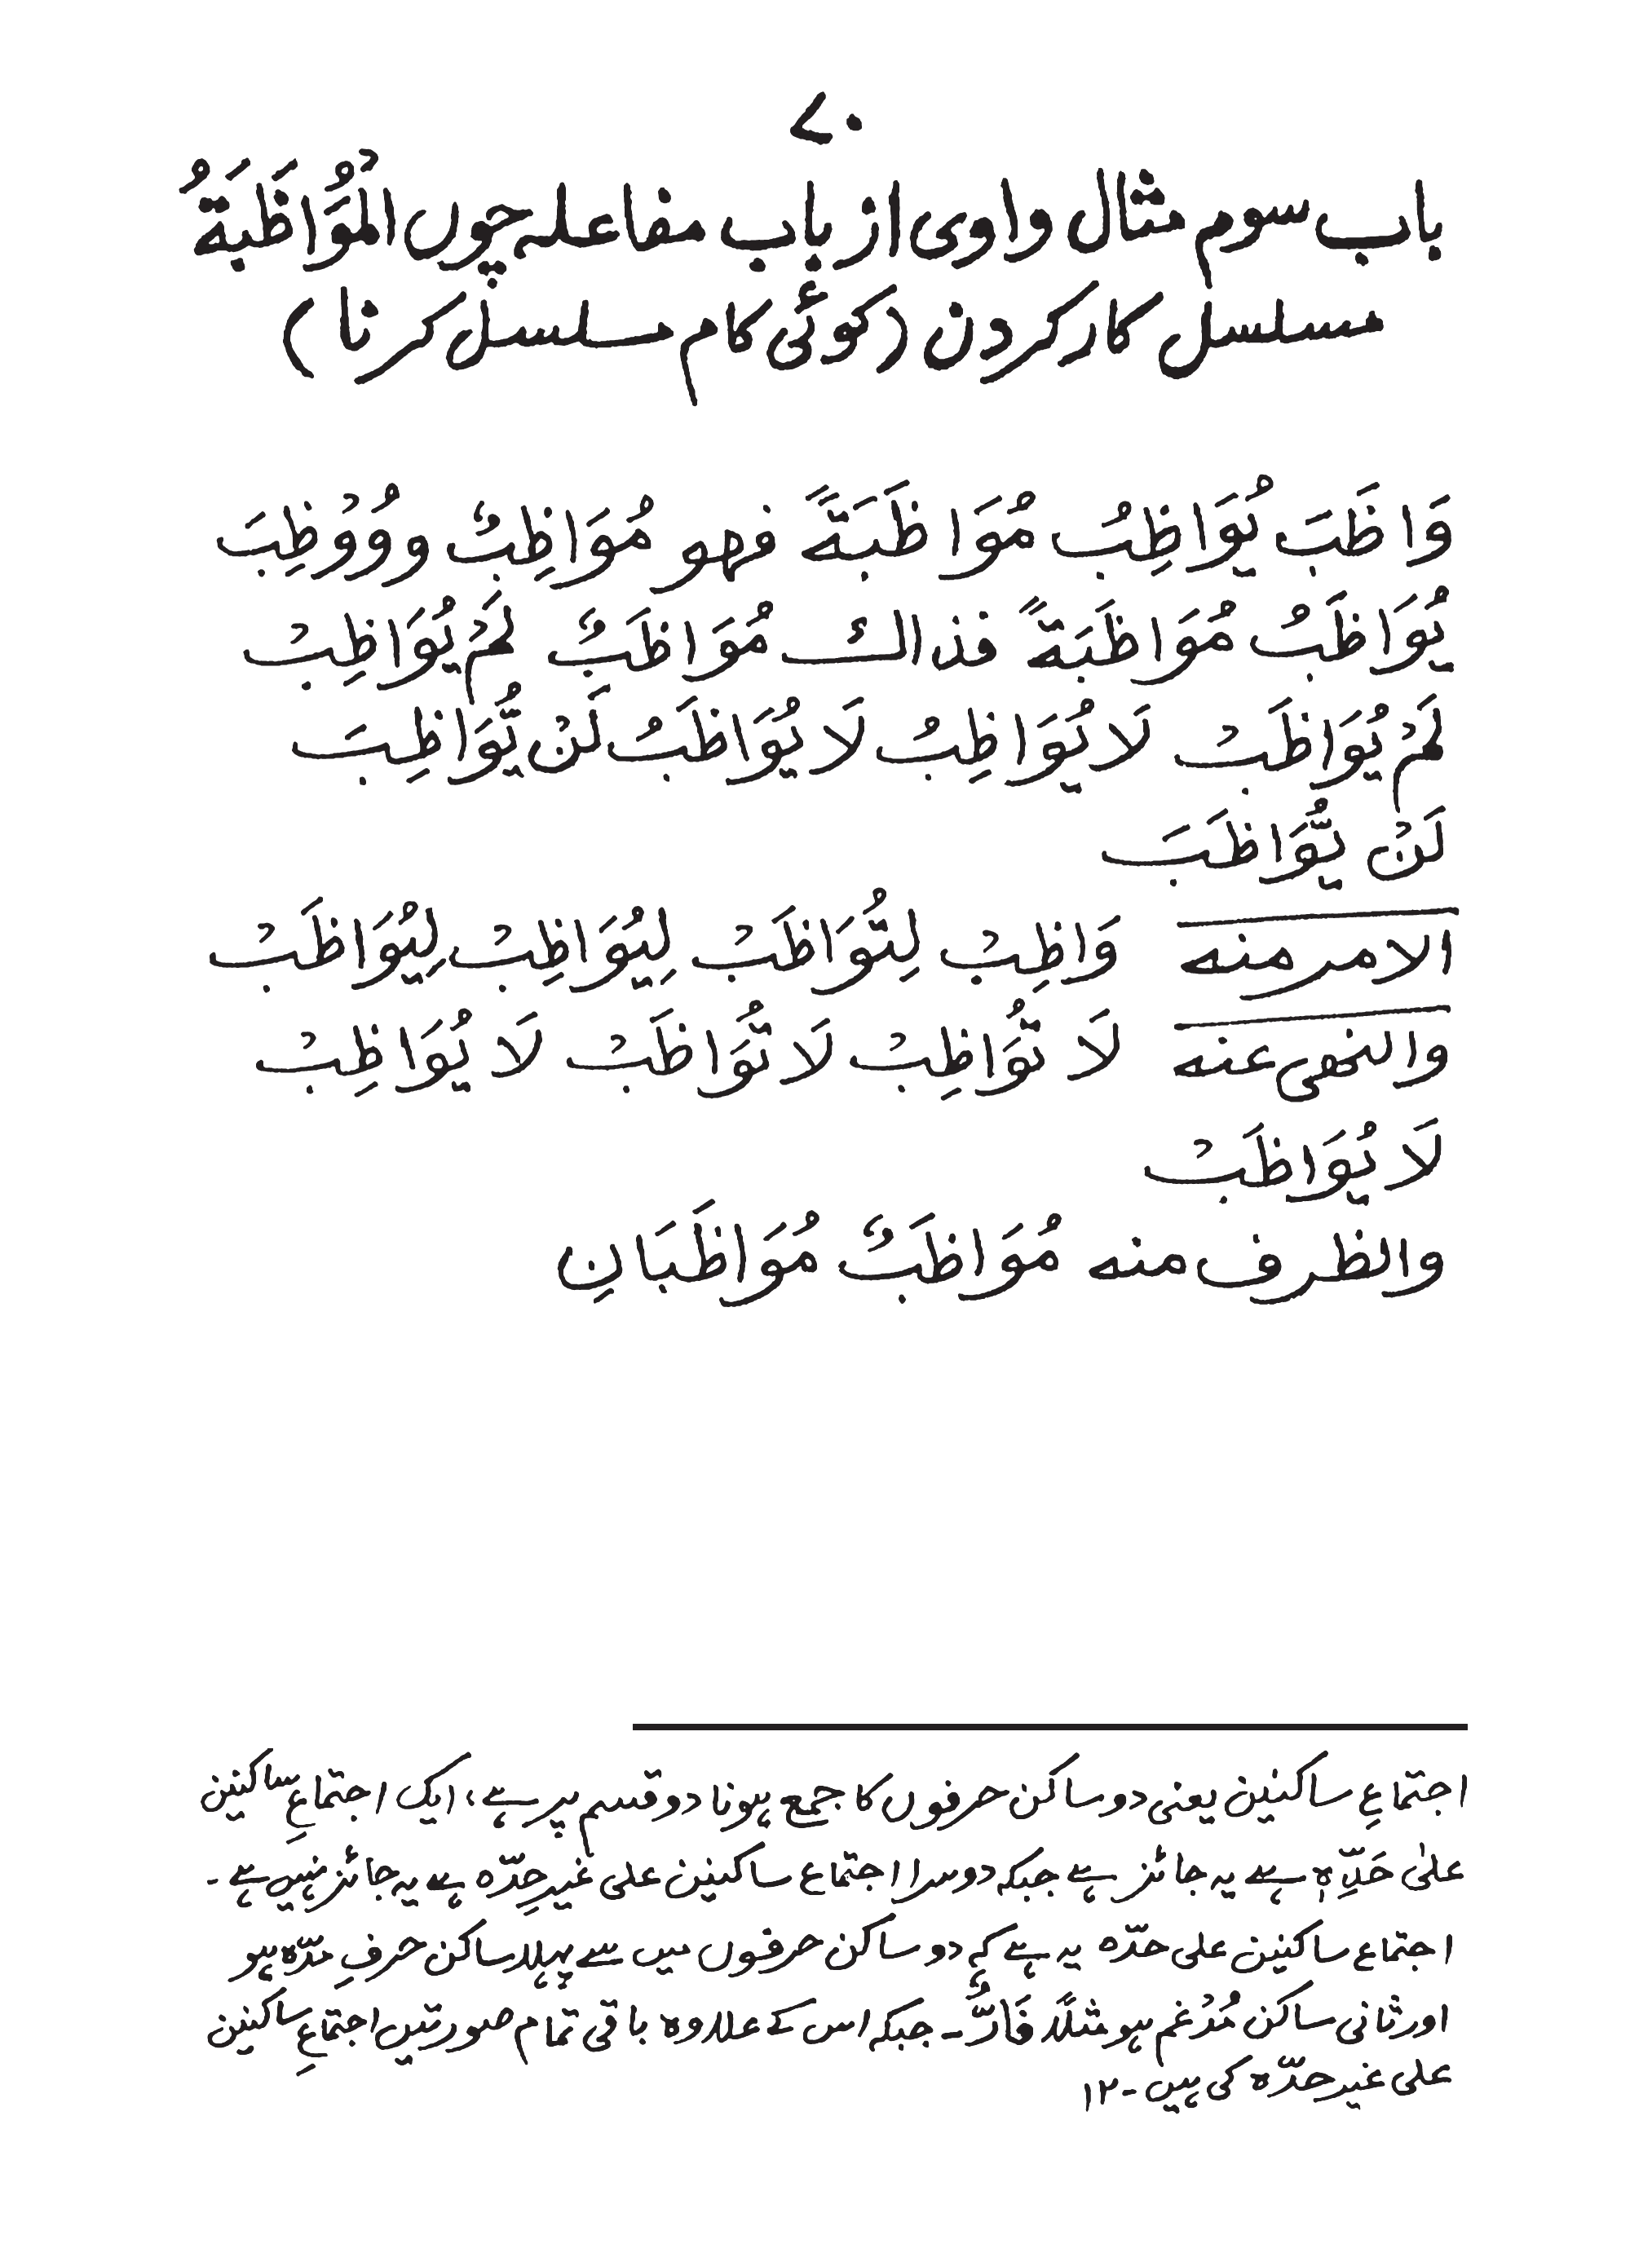 ۷۰
باب سوم مثال واوی از باب مفاعلہ چوں الْمُوَاظَبَةُ
مسلسل کار کردن (کوئی کام مسلسل کرنا)
وَاظَبَ يُوَاظِبُ مُوَاظَبَةً فهو مُوَاظِبٌ و وُوْظِبَ
يُوَاظَبُ مُوَاظَبَةً فذالك مُوَاظَبٌ لَمْ يُوَاظِبْ
لَمْ يُوَاظَبْ لَا يُوَاظِبُ لَا يُوَاظَبُ لَنْ يُّوَاظِبَ
لَنْ يُّوَاظَبَ
الامر منه وَاظِبْ لِتُوَاظَبْ لِيُوَاظِبْ لِيُوَاظَبْ
والنهى عنه لَا تُوَاظِبْ لَا تُوَاظَبْ لَا يُوَاظِبْ
لَا يُوَاظَبْ
والظرف منه مُوَاظَبٌ مُوَاظَبَانِ
اجتماعِ ساکنین یعنی دو ساکن حرفوں کا جمع ہونا دو قسم پر ہے، ایک اجتماعِ ساکنین
علیٰ حَدِّہٖ ہے یہ جائز ہے جبکہ دوسرا اجتماع ساکنین علی غیرِ حِدّہ ہے یہ جائز نہیں ہے۔
اجتماع ساکنین علی حدّہ یہ ہے کہ دو ساکن حرفوں میں سے پہلا ساکن حرفِ مدّہ ہو
اور ثانی ساکن مُدْغم ہو مثلاً فَارٌّ۔ جبکہ اس کے علاوہ باقی تمام صورتیں اجتماعِ ساکنین
علی غیر حدّہ کی ہیں۔ ۱۲